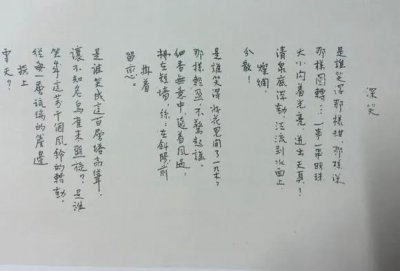 深笑
是誰笑得那樣甜，那樣深
那樣圓轉？一串一串明珠
大小閃着光亮，迸出天真！
清泉底浮動，泛流到水面上，
燦爛，
分散！
是誰笑得好花兒開了一朵？
那樣輕盈不驚起誰。
細香無意中，隨着風過，
拂在短牆，絲絲在斜陽前
掛着
留戀。
是誰笑成這百層塔高聳，
讓不知名鳥雀來盤旋？是誰
笑成這萬千個風鈴的轉動，
從每一層琉璃的簷邊
搖上
雲天？